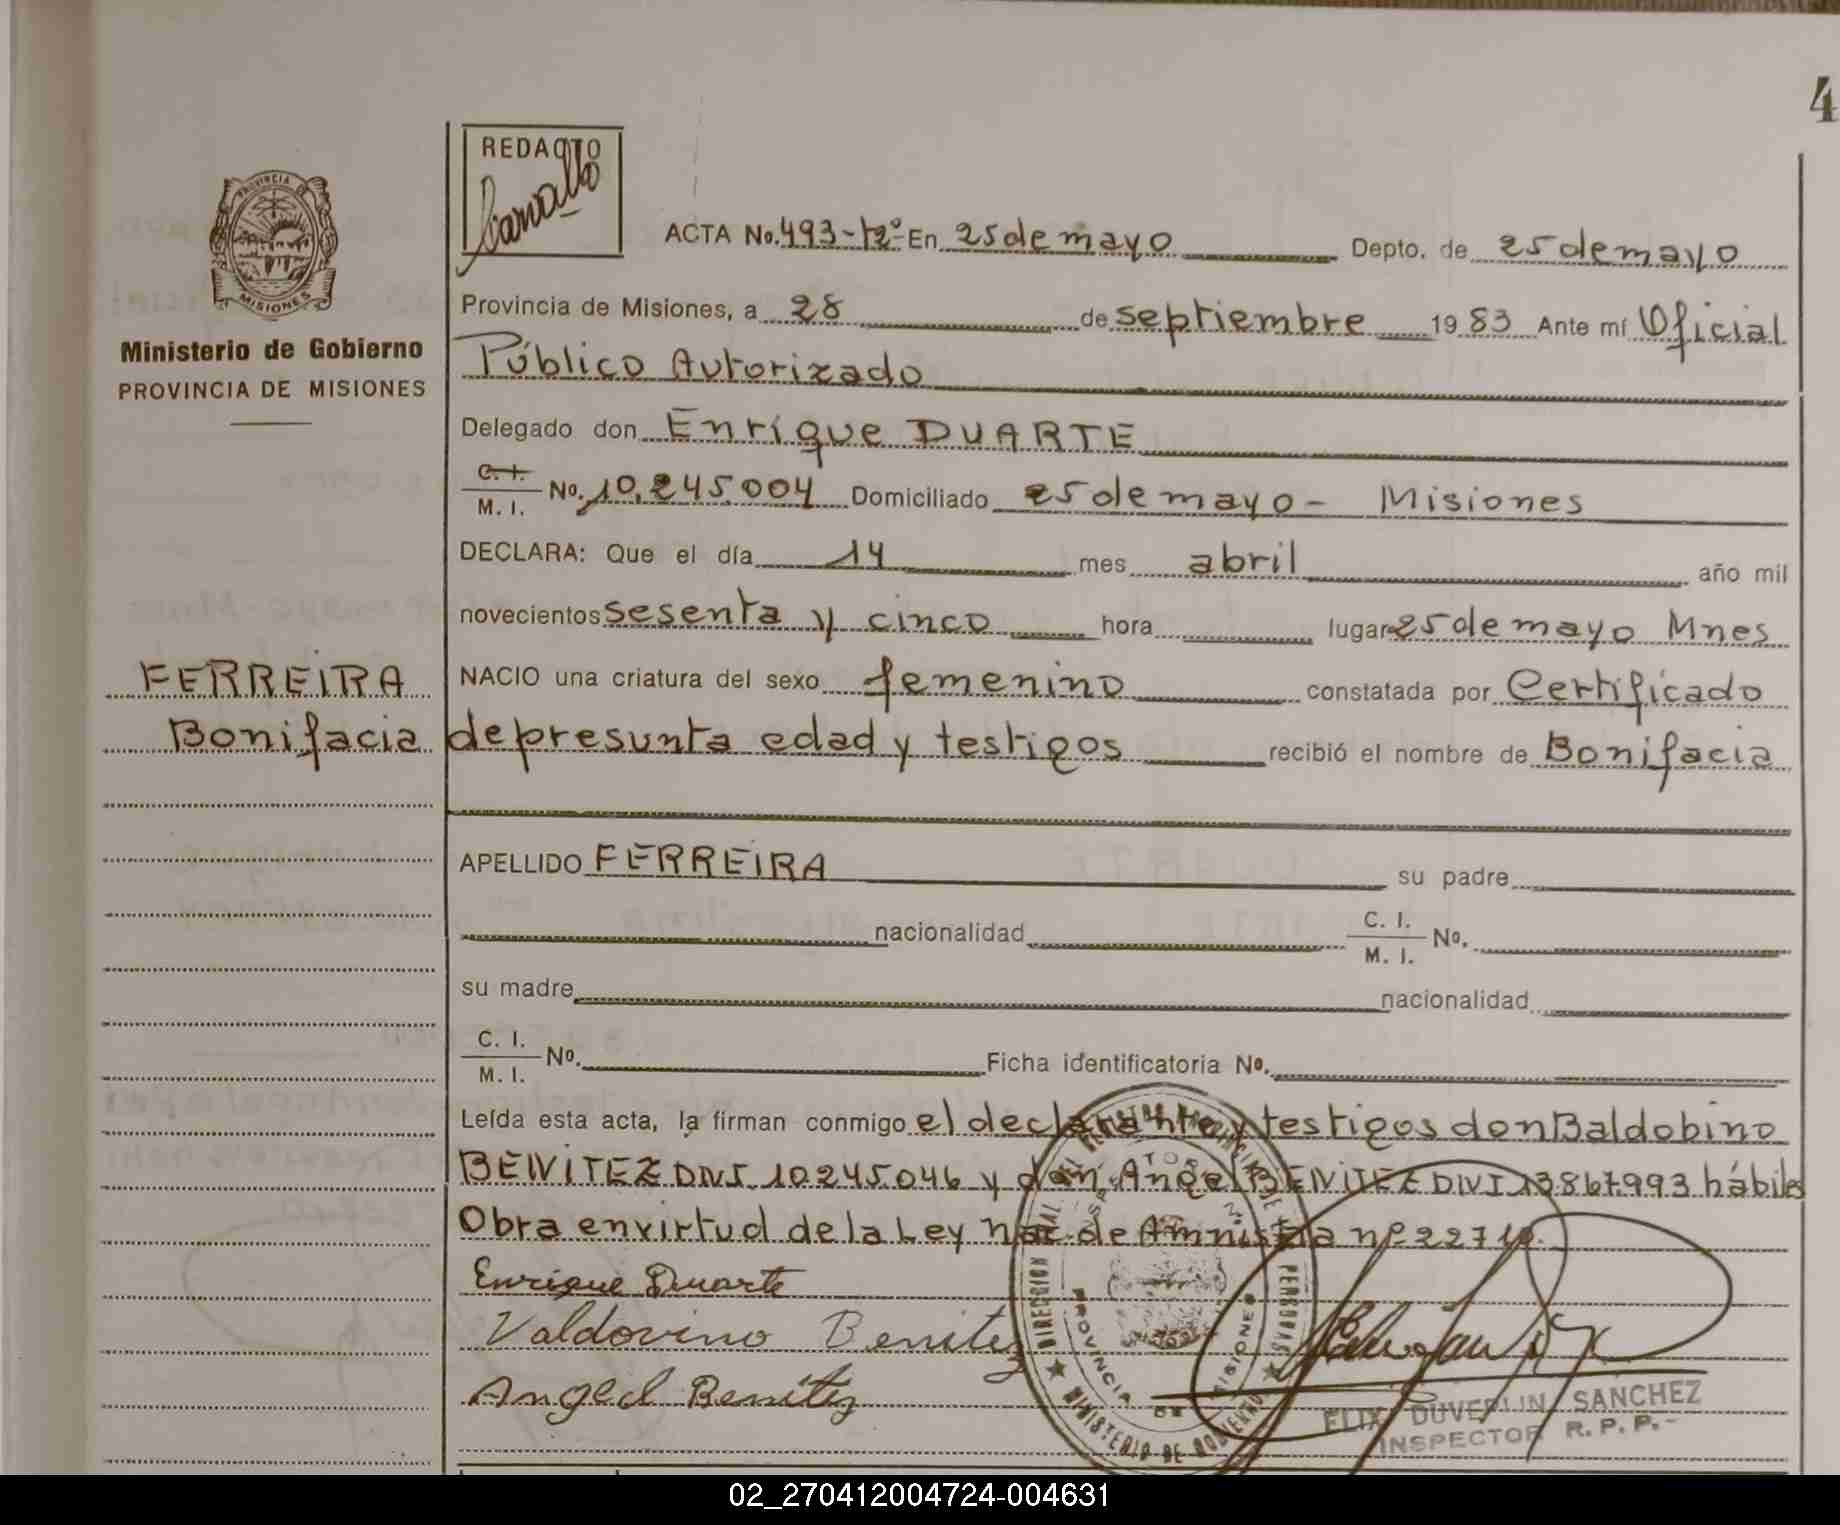 4
REDACTO
Carvallo
PROVINCIA DE
MISIONES
Ministerio de Gobierno
PROVINCIA DE MISIONES
ACTA No. 493-tº2- En 25 de mayo Depto. de 25 de mayo
Provincia de Misiones, a 28 de septiembre 1983 Ante mí Oficial
Público Autorizado
Delegado don Enrique DUARTE
C. I.
M. I. No. 10.245.004 Domiciliado 25 de mayo - Misiones
DECLARA: Que el día 14 mes abril año mil
novecientos sesenta y cinco hora lugar 25 de mayo Mnes
FERREIRA
Bonifacia
NACIO una criatura del sexo femenino constatada por Certificado
de presunta edad y testigos recibió el nombre de Bonifacia
APELLIDO FERREIRA su padre
nacionalidad C. I.
M. I. No.
su madre nacionalidad
C. I.
M. I. No. Ficha identificatoria No.
Leída esta acta, la firman conmigo el declarante y testigos don Baldobino
BENITEZ DNI. 10.245.046 y don Angel BENITEZ DNI 13.867.993 hábiles
Obra en virtud de la Ley Nac. de Amnistia nº 22710.
Enrique Duarte
Valdovino Benitez
Angel Benitez
PROVINCIA DE MISIONES
MINISTERIO DE GOBIERNO
SANCHEZ
INSPECTOR R. P. P.-
02_270412004724-004631